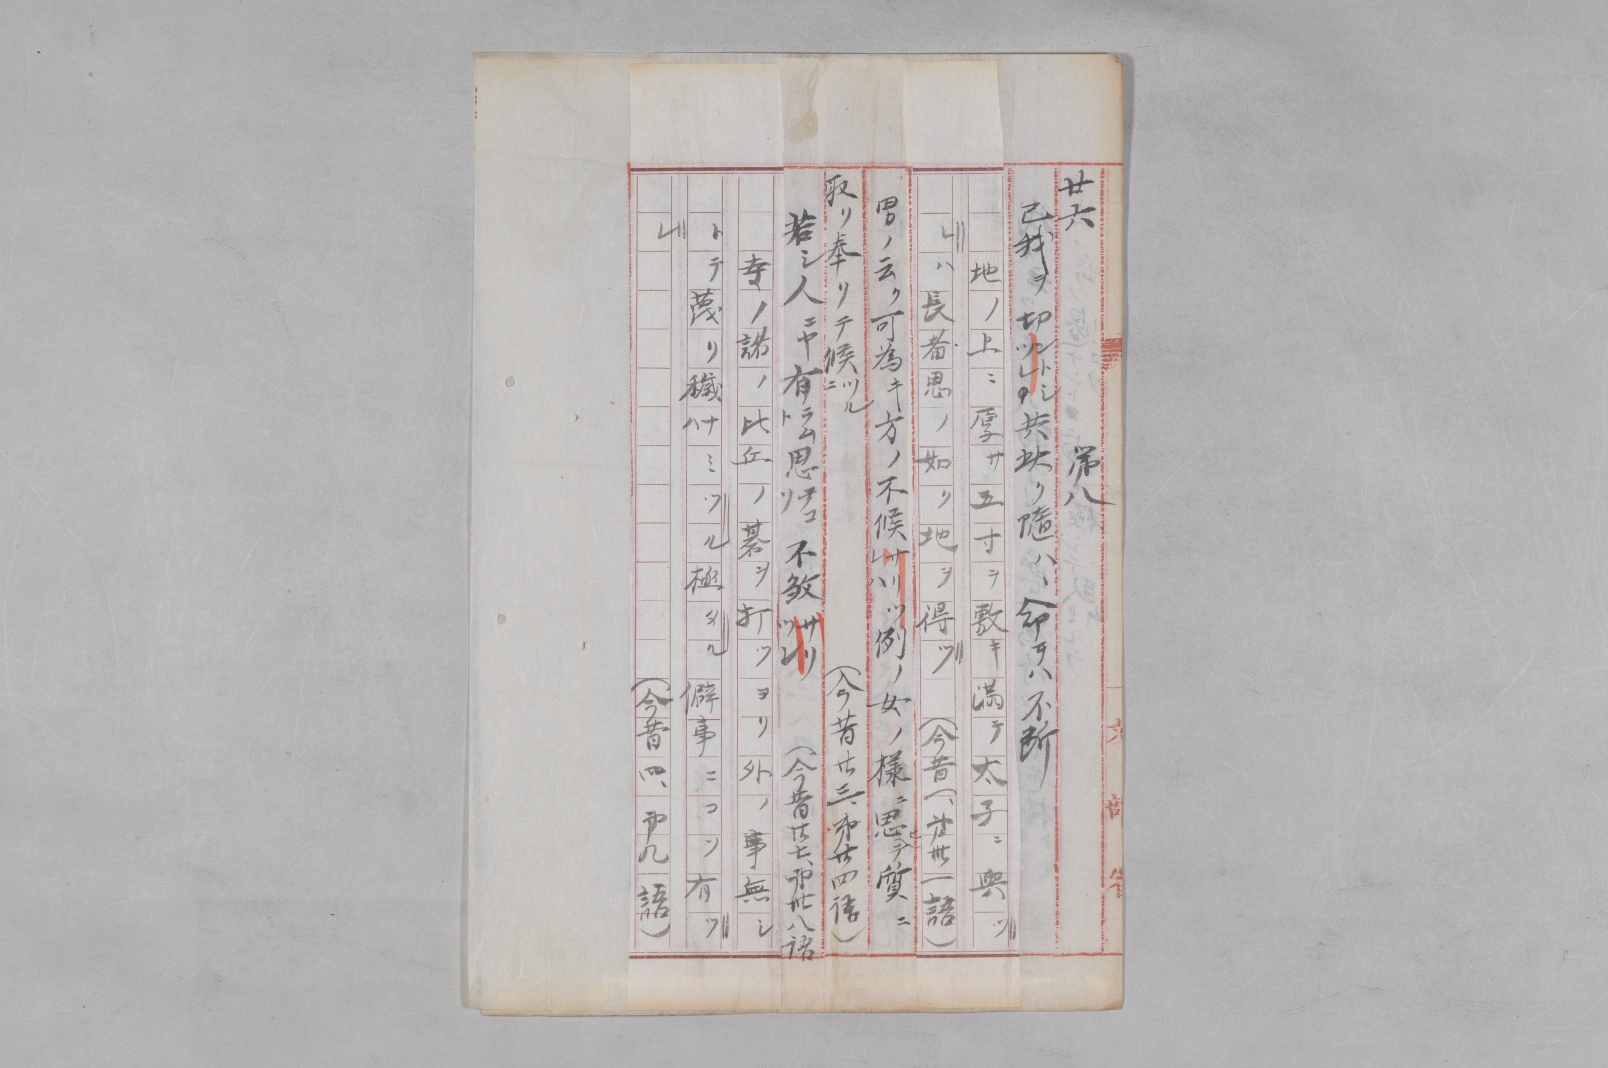 廿六 第八
己我ヲ切ツレトシ共我ハ隨ハヽ命オハ不断
地ノ上ニ厚サ五寸ヲ敷キ満テ太子ニ與ツ
レハ長者思ノ如ク地ヲ得ツ (今昔一、第卅一語)
男ノ云ク可為キ方ノ不候サリツレハ例ノ女ノ様ニ思ヒテ質ニ
取リ奉リテ候ツルニ (今昔廿三、第廿四語)
若シ人ニヤ有ラムト思ツヽコソ不敏サリツレ (今昔廿七、第卅八語
寺ノ諸ノ比丘ノ碁ヲ打ツヨリ外ノ事無シ
トテ蔑リ穢ハナミツル極タル僻事ニコソ有ツ
レ (今昔四、第九語)